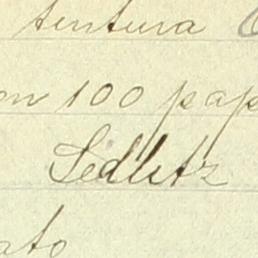 tintura
en 100 pap
Sedlitz
ato